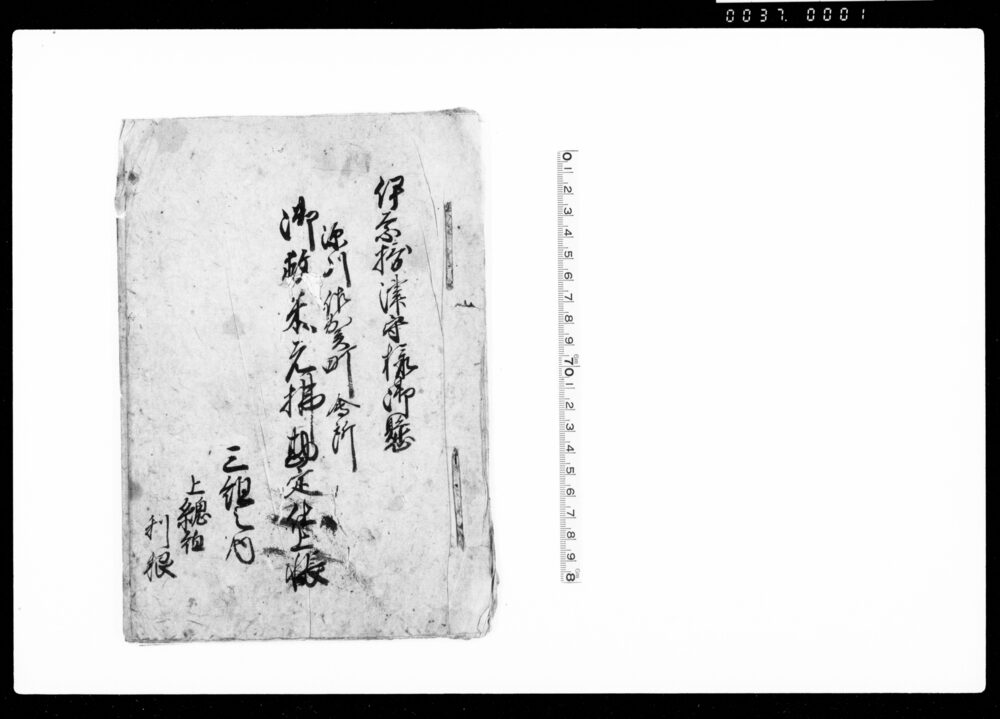 0037. 0001
伊奈摂津守様御懸
深川佐賀町会所
御救米元拂勘定仕上帳
三組之内
上總組
利根
0 1 2 3 4 5 6 7 8 9 10 1 2 3 4 5 6 7 8 9